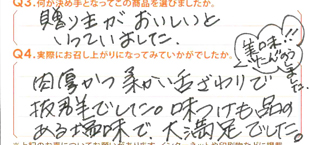 Q3.何が決め手となってこの商品を選びましたか。
贈り主がおいしいと
いっていました。
Q4.実際にお召し上がりになってみていかがでしたか。
美味!!
肉厚かつ柔かい舌ざわりで
抜群でした。味つけも品の
ある塩味で、大満足でした。